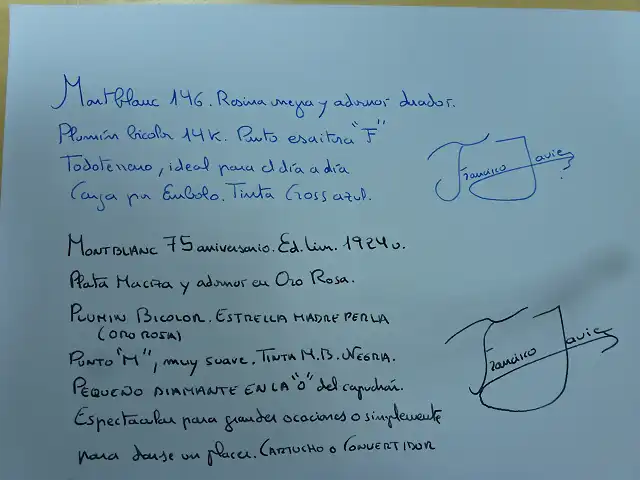 Montblanc 146. Resina negra y adornos dorados.
Plumín bicolor 14K. Punto escritura "F"
Todoterreno, ideal para el día a día
Carga por Émbolo. Tinta Cross azul.
Francisco Javier
MONTBLANC 75 aniversario. Ed. Lim. 1924 u.
Plata Maciza y adornos en Oro Rosa.
PLUMIN BICOLOR. ESTRELLA MADRE PERLA
(ORO ROSA)
PUNTO "M", MUY SUAVE. TINTA M.B. NEGRIA.
PEQUEÑO DIAMANTE EN LA "O" del capuchón.
Espectacular para grandes ocaciones o simplemente
para darse un placer. CARTUCHO O CONVERTIDOR
Francisco Javier